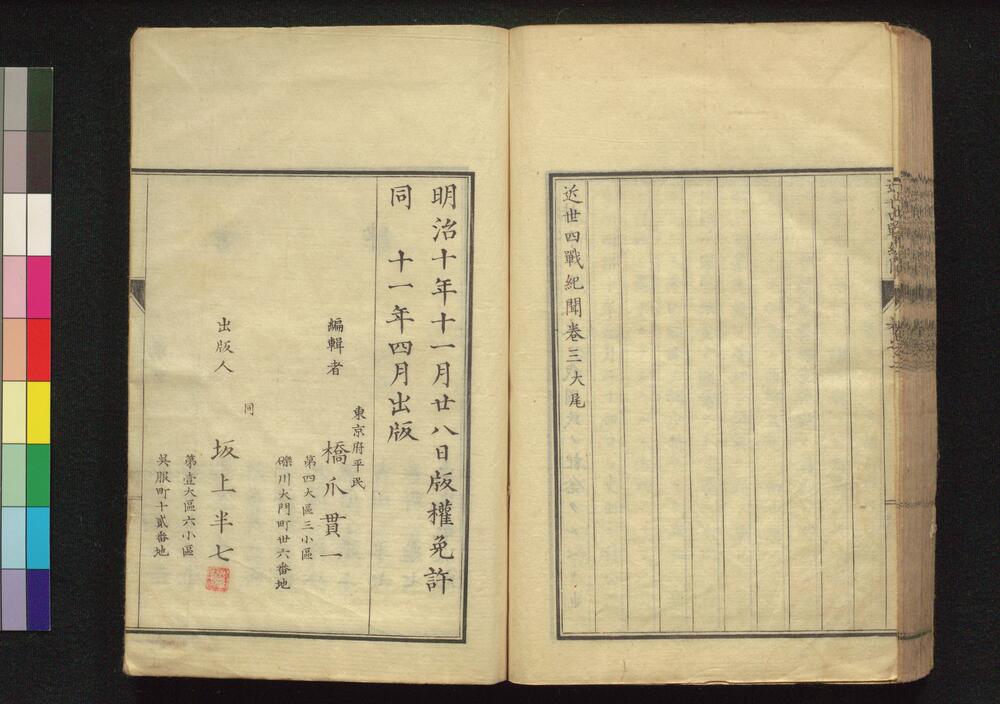 近世四戰紀聞卷三大尾
明治十年十一月廿八日版權免許
同　十一年四月出版
東京府平民
編輯者　橋爪貫一
第四大區三小區
礫川大門町丗六番地
同
出版人　坂上半七
第壹大區六小區
吳服町十貳番地